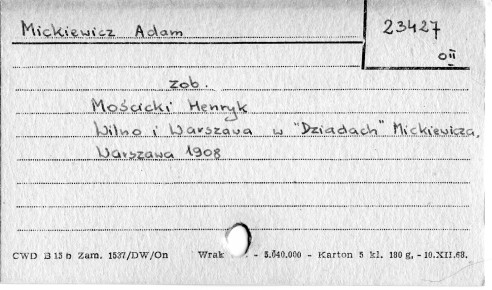 Mickiewicz Adam
23427
oII
zob.
Mościcki Henryk
Wilno i Warszawa w "Dziadach" Mickiewicza,
Warszawa 1908
CWD B 15 b Zam. 1537/DW/On Wrak - 5.640.000 - Karton 5 kl. 180 g. - 10.XII.68.